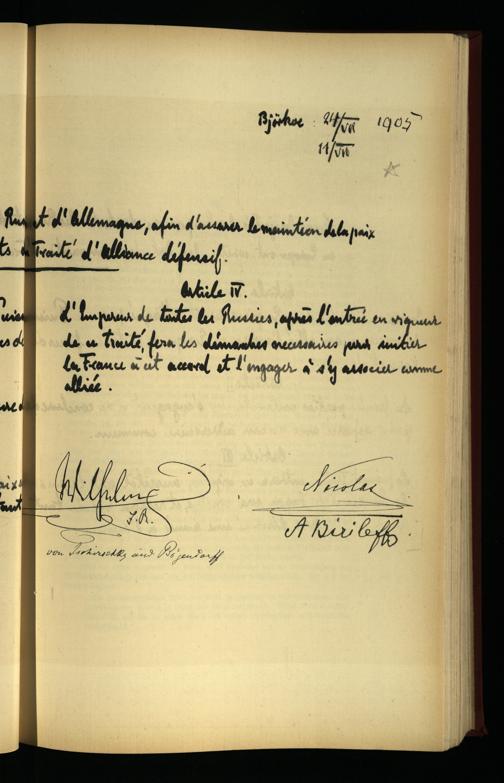 Björkoe 24/VII 1905
11/VII
et d'Allemagne, afin d'assurer le maintien de la paix
Traité d'Alliance défensif.
Article IV.
d'Empereur de toutes les Russies, après l'entrée en vigueur
de ce traité, fera les démarches necessaires pour initier
la France à cet accord et l'engager à s'y associer comme
alliée.
Wilhelm
I.R.
von Tschirschky und Bögendorff
Nicolas
A Birileff